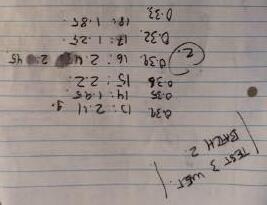 TEST 3 WET.
BATCH 2
0.39 13: 2.11 g.
0.35 14: 1.95
0.38 15: 2.2
0.39 16: 2.45
2.
0.32 17: 1.25
0.33 18: 1.85